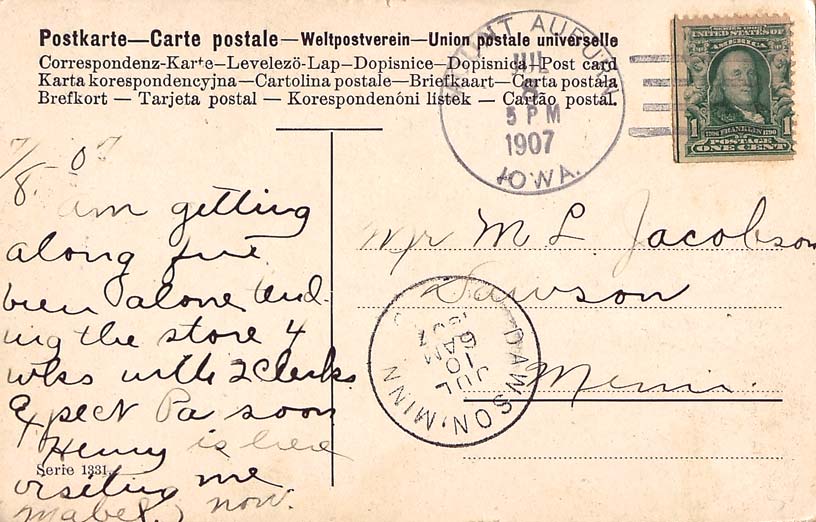 Postkarte—Carte postale—Weltpostverein—Union postale universelle
Correspondenz-Karte—Levelező-Lap—Dopisnice—Dopisnica—Post card
Karta korespondencyjna—Cartolina postale—Briefkaart—Carta postala
Brefkort — Tarjeta postal — Korespondenóni listek — Cartão postal.
MOUNT AUBURN
JUL
8
5 PM
1907
IOWA.
SERIES 1902
UNITED STATES OF
AMERICA
1 1706 FRANKLIN 1790 1
POSTAGE
ONE CENT
7/8. 07
am getting
along fine
been alone tend-
ing the store 4
wks with 2 Clerks
Expect Pa soon
Henny is here
visiting me
now.
Mabel.
Serie 1331.
Mr M L Jacobson
Dawson
Minn.
DAWSON, MINN
JUL
10
6 AM
1907